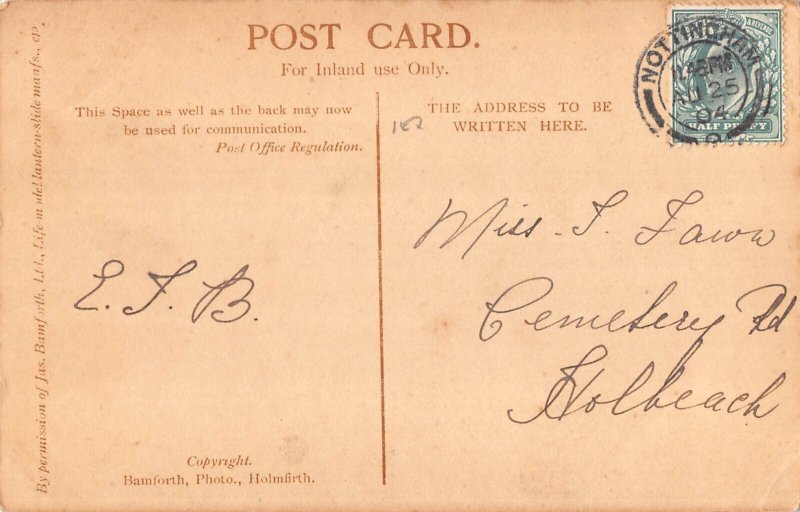 POST CARD.
For Inland use Only.
This Space as well as the back may now
be used for communication.
Post Office Regulation.
THE ADDRESS TO BE
WRITTEN HERE.
NOTTINGHAM
11.45PM
25
04
HALF PENNY
167
E. J. B.
Miss. J. Fawn
Cemetery Rd
Holbeach
Copyright.
Bamforth, Photo., Holmfirth.
By permission of Jas. Bamforth, Ltd., Life model lantern-slide manfs., &c.